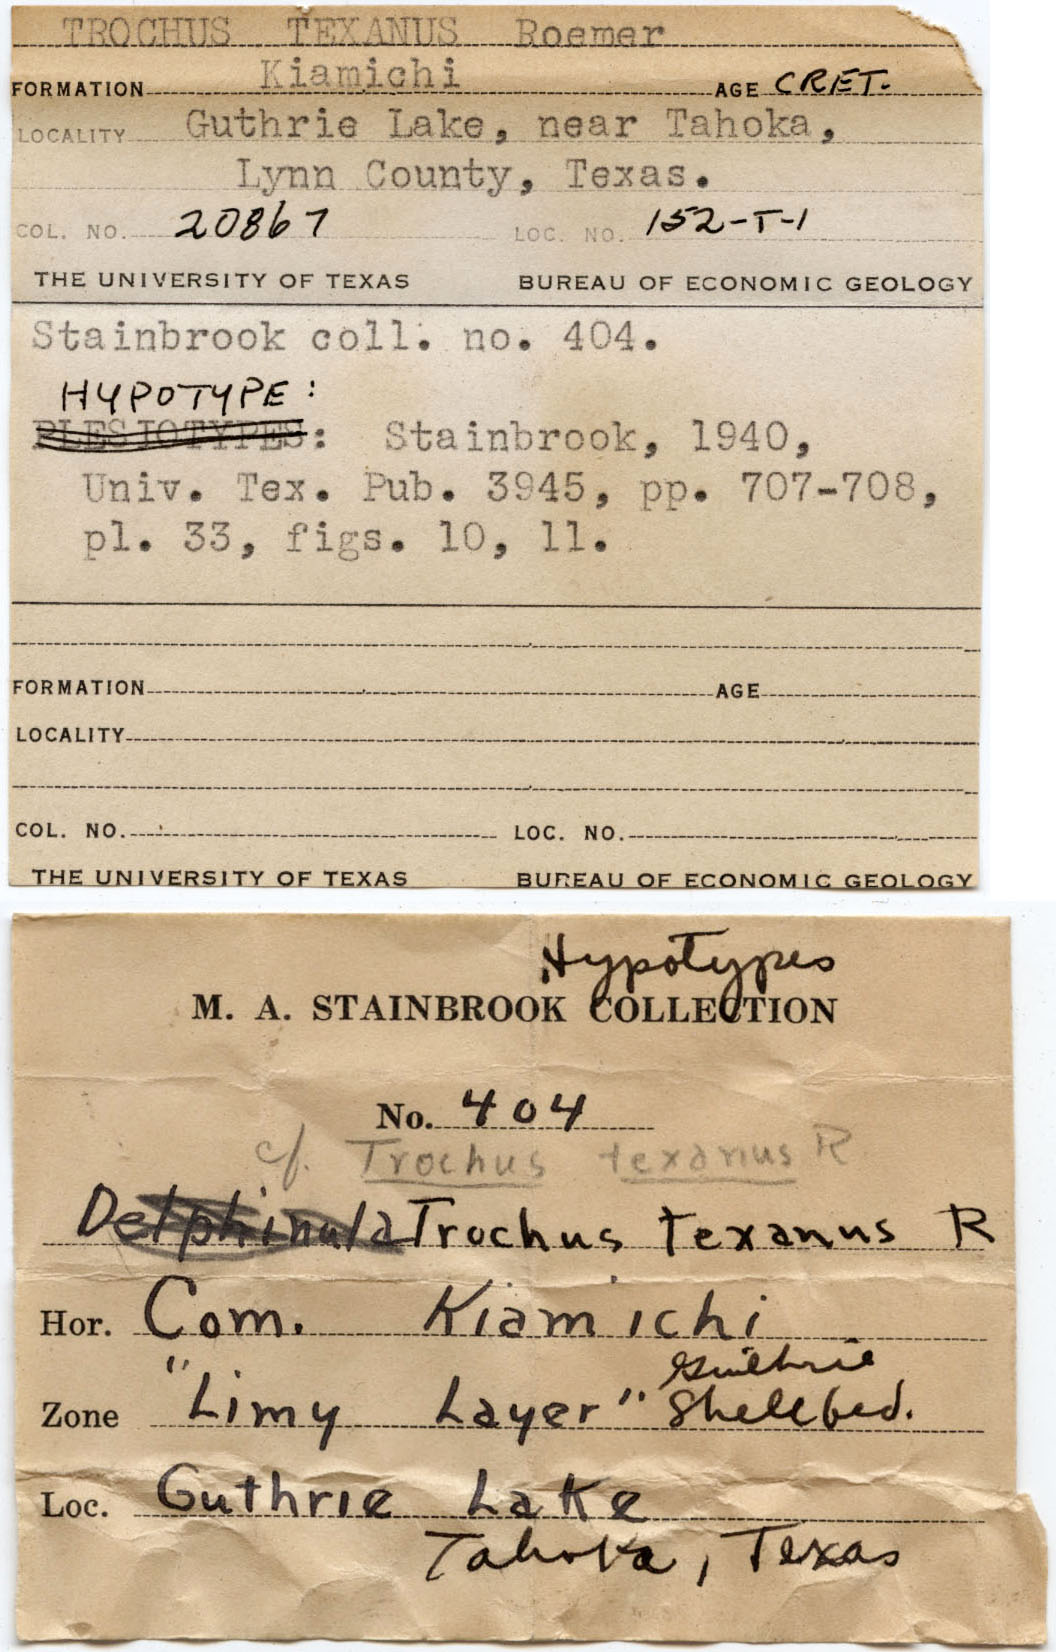 TROCHUS TEXANUS Roemer
FORMATION Kiamichi AGE CRET.
LOCALITY Guthrie Lake, near Tahoka,
Lynn County, Texas.
COL. NO. 20867 LOC. NO. 152-T-1
THE UNIVERSITY OF TEXAS BUREAU OF ECONOMIC GEOLOGY
Stainbrook coll. no. 404.
HYPOTYPE:
PLESIOTYPES: Stainbrook, 1940,
Univ. Tex. Pub. 3945, pp. 707-708,
pl. 33, figs. 10, 11.
FORMATION AGE
LOCALITY
COL. NO. LOC. NO.
THE UNIVERSITY OF TEXAS BUREAU OF ECONOMIC GEOLOGY
Hypotypes
M. A. STAINBROOK COLLECTION
No. 404
cf. Trochus texanus R
Delphinula Trochus texanus R
Hor. Com. Kiamichi
Guthrie
Zone "Limy Layer" Shellbed.
Loc. Guthrie Lake
Tahoka, Texas